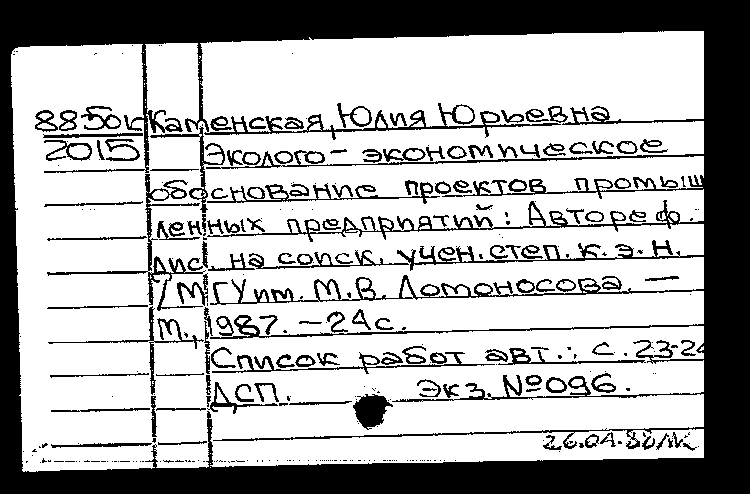 8850к Каменская, Юлия Юрьевна.
2015 Эколого - экономическое
обоснование проектов промыш
ленных предприятий : Автореф.
дис. на соиск. учен. степ. к. э. н.
/ МГУ им. М. В. Ломоносова. —
М., 1987. — 24 с.
Список работ авт.: с. 23-24
ДСП. Экз. №096.
26.04.88